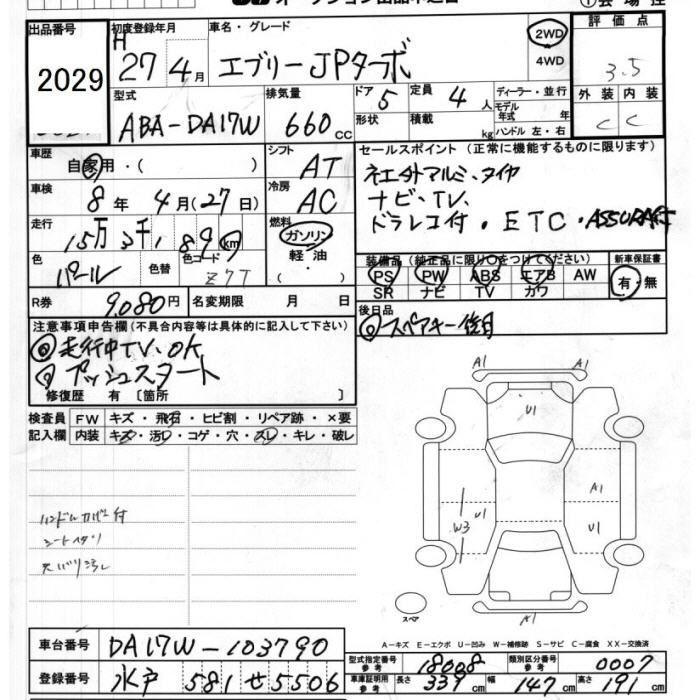 出品番号
2029
初度登録年月
H
27年4月
車名・グレード
エブリーJPターボ
2WD
4WD
評価点
3.5
外装 内装
C C
型式
ABA-DA17W
排気量
660cc
ドア
5
形状
定員
4人
積載
kg
ディーラー・並行
モデル年式 年
ハンドル 左・右
車歴
自家用・( )
シフト
AT
セールスポイント (正常に機能するものに限ります)
社外アルミ、タイヤ
ナビ、TV、
ドラレコ付・ETC・
車検
8年4月(27日)
冷房
AC
走行
15万3千1897km
燃料
ガソリン
軽油
・( )
色
パール
色替
色コード
Z7T
装備品 (純正品に限り○をつけてください)
PS PW ABS エアB AW
SR ナビ TV カワ
新車保証書
有・無
R券
9,080円
名変期限 月 日
後日品
◎スペアキー後日
注意事項申告欄 (不具合内容等は具体的に記入して下さい)
◎走行中TV、OK
◎プッシュスタート
修復歴 有 [箇所 ]
検査員
記入欄
FW キズ・飛石・ヒビ割・リペア跡・×要
内装 キズ・汚レ・コゲ・穴・スレ・キレ・破レ
ハンドルカバー付
A1 A1
U1
A1
W3 U1 U1
スペア
A1
A-キズ E-エクボ U-凹み W-補修跡 S-サビ C-腐食 XX-交換済
車台番号
DA17W-103790
登録番号
水戸 581 せ 5506
型式指定番号
参考
18008
類別区分番号
参考
0007
車庫証明用
参考
長さ 339cm 幅 147cm 高さ 191cm